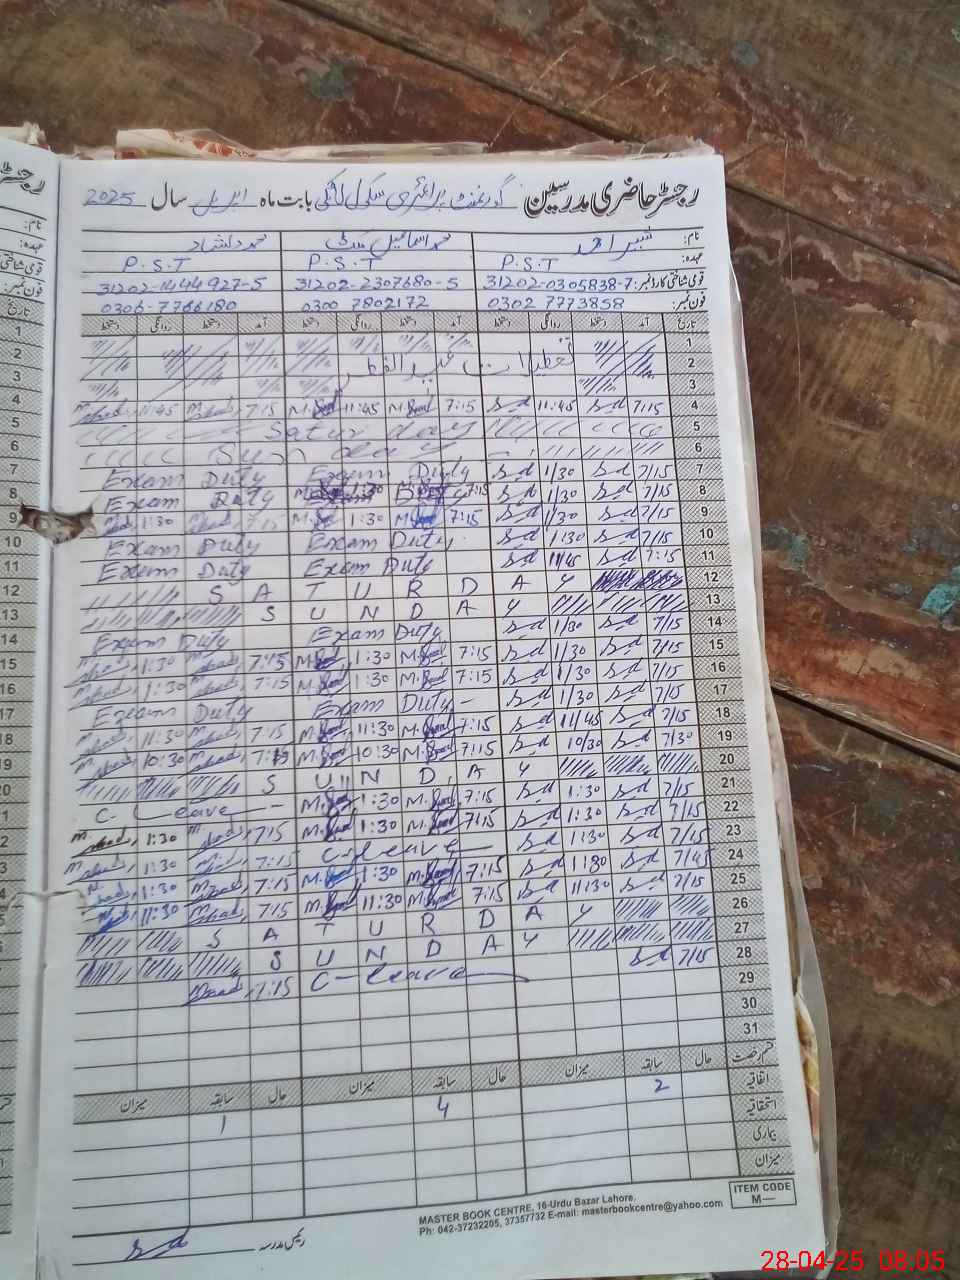 رجسٹر حاضری مدرسین گورنمنٹ پرائمری سکول بابت ماہ اپریل سال 2025
نام: شبیر احمد محمد اسماعیل محمد دلشاد
عہدہ: P.S.T P.S.T P.S.T
قومی شناختی کارڈ نمبر: 31202-0305838-7 31202-2307680-5 31202-1444927-5
فون نمبر: 0302 7773858 0300 7802172 0306-7766180
تاریخ آمد دستخط روانگی دستخط آمد دستخط روانگی دستخط آمد دستخط روانگی دستخط
1
2 تعطیلات عید الفطر
3
4 7:15 11:45 7:15 11:45 7:15 11:45
5 Saturday
6 Sunday
7 7/15 1/30 Exam Duty Exam Duty
8 7/15 1/30 7:15 1:30 Exam Duty
9 7/15 1/30 7:15 1:30 7:15 1:30
10 7/15 1:30 Exam Duty Exam Duty
11 7:15 11/45 Exam Duty Exam Duty
12 SATURDAY
13 SUNDAY
14 7/15 1/30 Exam Duty Exam Duty
15 7/15 1/30 7:15 1:30 7:15 1:30
16 7/15 1/30 7:15 1:30 7:15 1:30
17 7/15 1/30 Exam Duty Exam Duty
18 7/15 11/45 7:15 11:30 7:15 11:30
19 7/30 10/30 7:15 10:30 7:15 10:30
20 SUNDAY
21 7/15 1:30 7:15 1:30 C-Leave
22 7/15 1:30 7:15 1:30 7:15 1:30
23 7/15 1:30 C-Leave 7:15 1:30
24 7/45 1:30 7:15 1:30 7:15 1:30
25 7/15 11:30 7:15 11:30 7:15 11:30
26 SATURDAY
27 SUNDAY
28 7/15 C-Leave 7:15
29
30
31
قسم رخصت حال سابقہ میزان حال سابقہ میزان حال سابقہ میزان
اتفاقیہ 2 4 1
استحقاقیہ
بیماری
میزان
ITEM CODE
M—
MASTER BOOK CENTRE, 16-Urdu Bazar Lahore.
Ph: 042-37232205, 37357732 E-mail: masterbookcentre@yahoo.com
رئیس مدرسہ
28-04-25 08:05